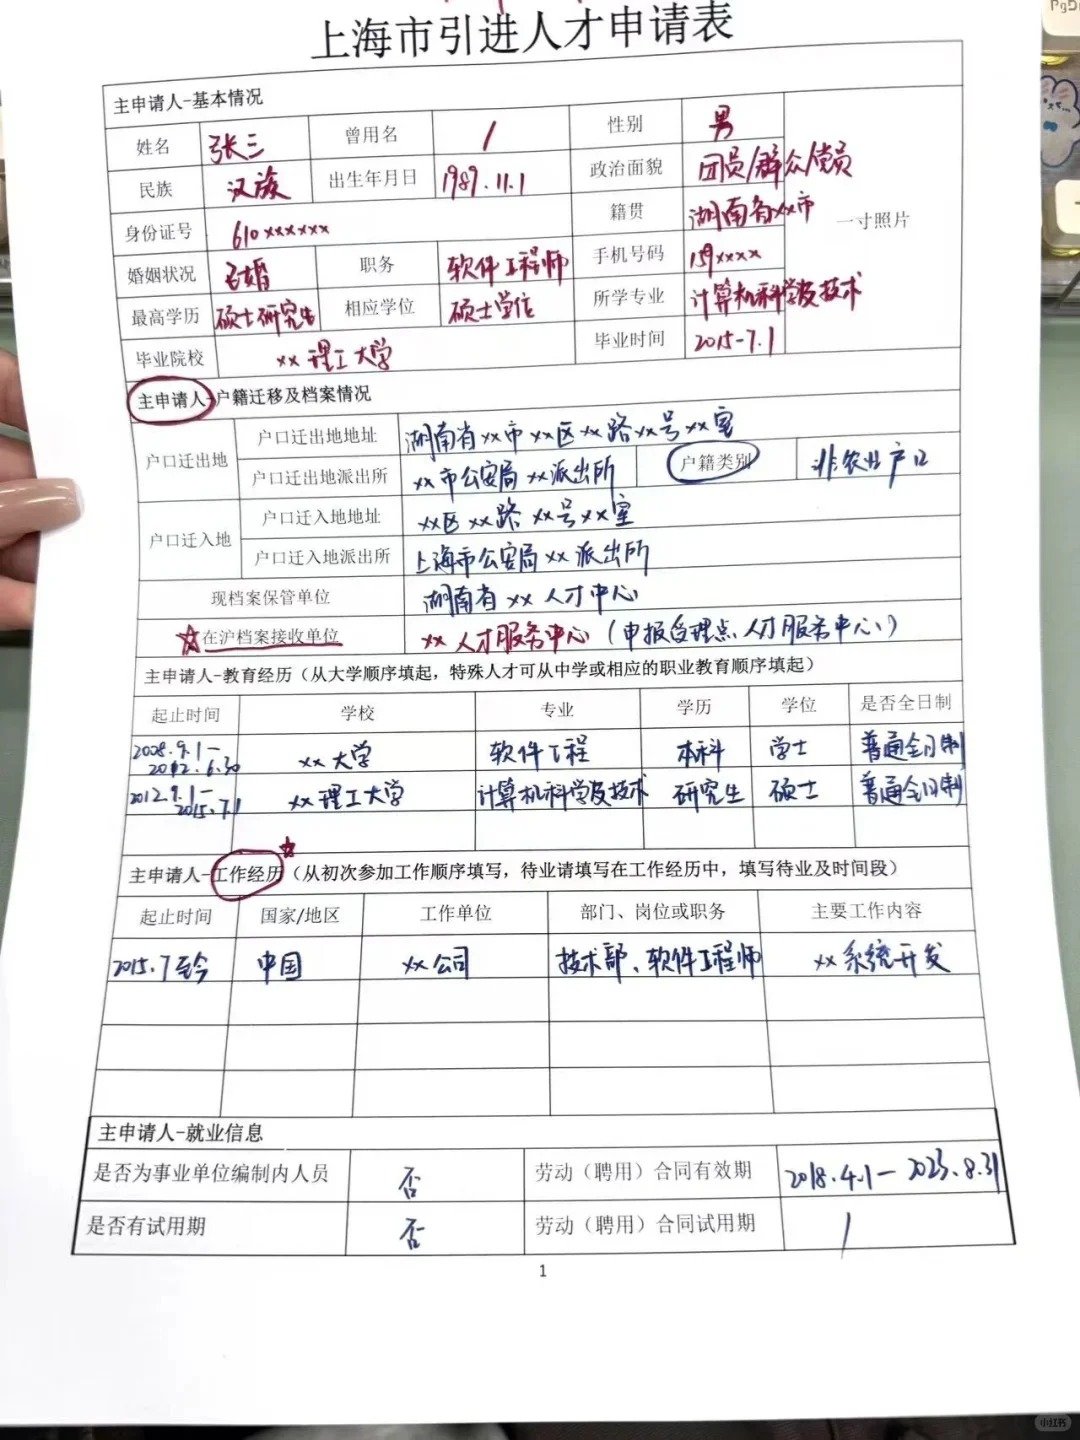 上海市引进人才申请表
主申请人-基本情况
姓名 张三 曾用名 / 性别 男
民族 汉族 出生年月日 1989.11.1 政治面貌 团员/群众/党员
身份证号 610xxxxxx 籍贯 湖南省xx市 一寸照片
婚姻状况 已婚 职务 软件工程师 手机号码 159xxxx
最高学历 硕士研究生 相应学位 硕士学位 所学专业 计算机科学及技术
毕业院校 xx理工大学 毕业时间 2015-7.1
主申请人-户籍迁移及档案情况
户口迁出地 户口迁出地地址 湖南省xx市xx区xx路xx号xx室
户口迁出地派出所 xx市公安局xx派出所 户籍类别 非农业户口
户口迁入地 户口迁入地地址 xx区xx路xx号xx室
户口迁入地派出所 上海市公安局xx派出所
现档案保管单位 湖南省xx人才中心
☆在沪档案接收单位 xx人才服务中心(申报受理点人才服务中心)
主申请人-教育经历(从大学顺序填起,特殊人才可从中学或相应的职业教育顺序填起)
起止时间 学校 专业 学历 学位 是否全日制
2008.9.1-2012.6.30 xx大学 软件工程 本科 学士 普通全日制
2012.9.1-2015.7.1 xx理工大学 计算机科学及技术 研究生 硕士 普通全日制
主申请人-工作经历(从初次参加工作顺序填写,待业请填写在工作经历中,填写待业及时间段)
起止时间 国家/地区 工作单位 部门、岗位或职务 主要工作内容
2015.7至今 中国 xx公司 技术部、软件工程师 xx系统开发
主申请人-就业信息
是否为事业单位编制内人员 否 劳动(聘用)合同有效期 2018.4.1-2023.8.31
是否有试用期 否 劳动(聘用)合同试用期 /
1
小红书